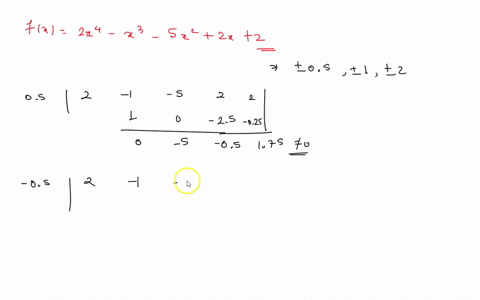 f(x) = 2x⁴ - x³ - 5x² + 2x + 2
* ±0.5, ±1, ±2
0.5 | 2 -1 -5 2 2
1 0 -2.5 -0.25
0 -5 -0.5 1.75 ≠0
-0.5 | 2 -1 -